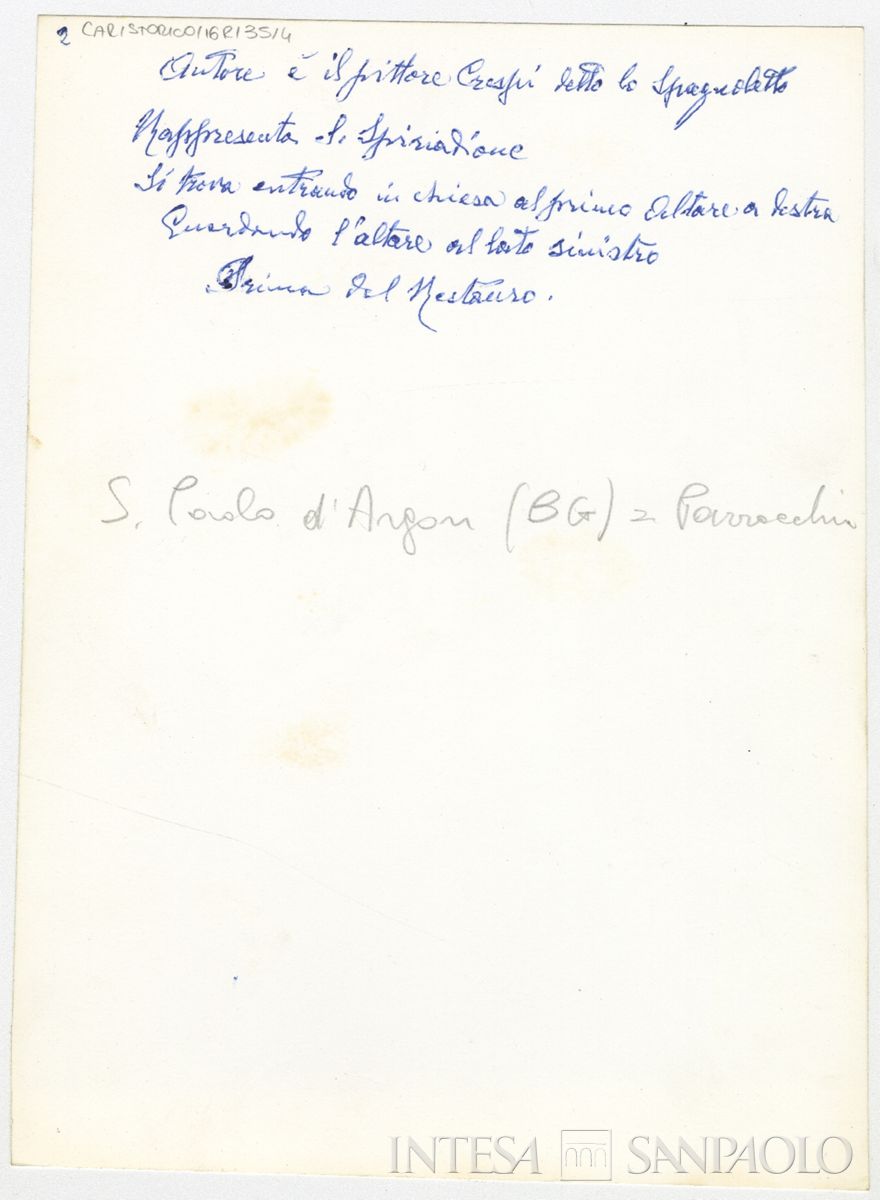 2 CARISTORICO/16R/35/4
Autore è il pittore Crespi detto lo Spagnoletto
Rappresenta S. Spiridione
Si trova entrando in chiesa al primo Altare a destra
Guardando l'altare al lato sinistro
Prima del Restauro.
S. Paolo d'Argon (BG) = Parrocchia
INTESA SANPAOLO